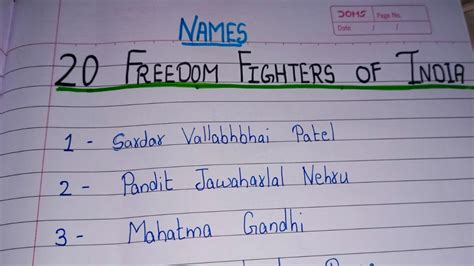 NAMES
DOMS Page No.
Date / /
20 FREEDOM FIGHTERS OF INDIA
1 - Sardar Vallabhbhai Patel
2 - Pandit Jawaharlal Nehru
3 - Mahatma Gandhi